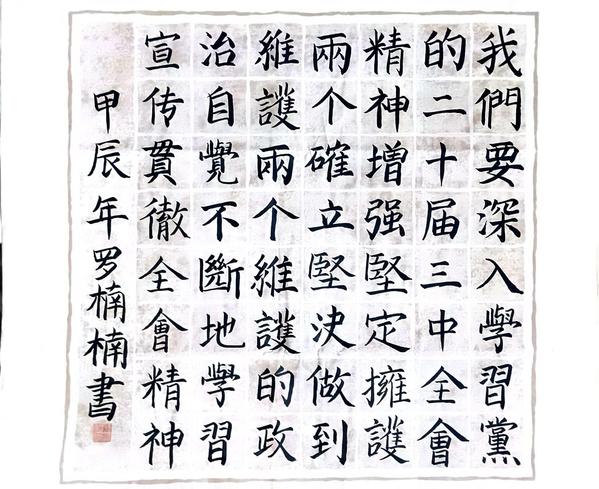 我們要深入學習黨
的二十届三中全會
精神增强堅定擁護
兩个確立堅決做到
維護兩个維護的政
治自覺不斷地學習
宣传貫徹全會精神
甲辰年罗楠楠書